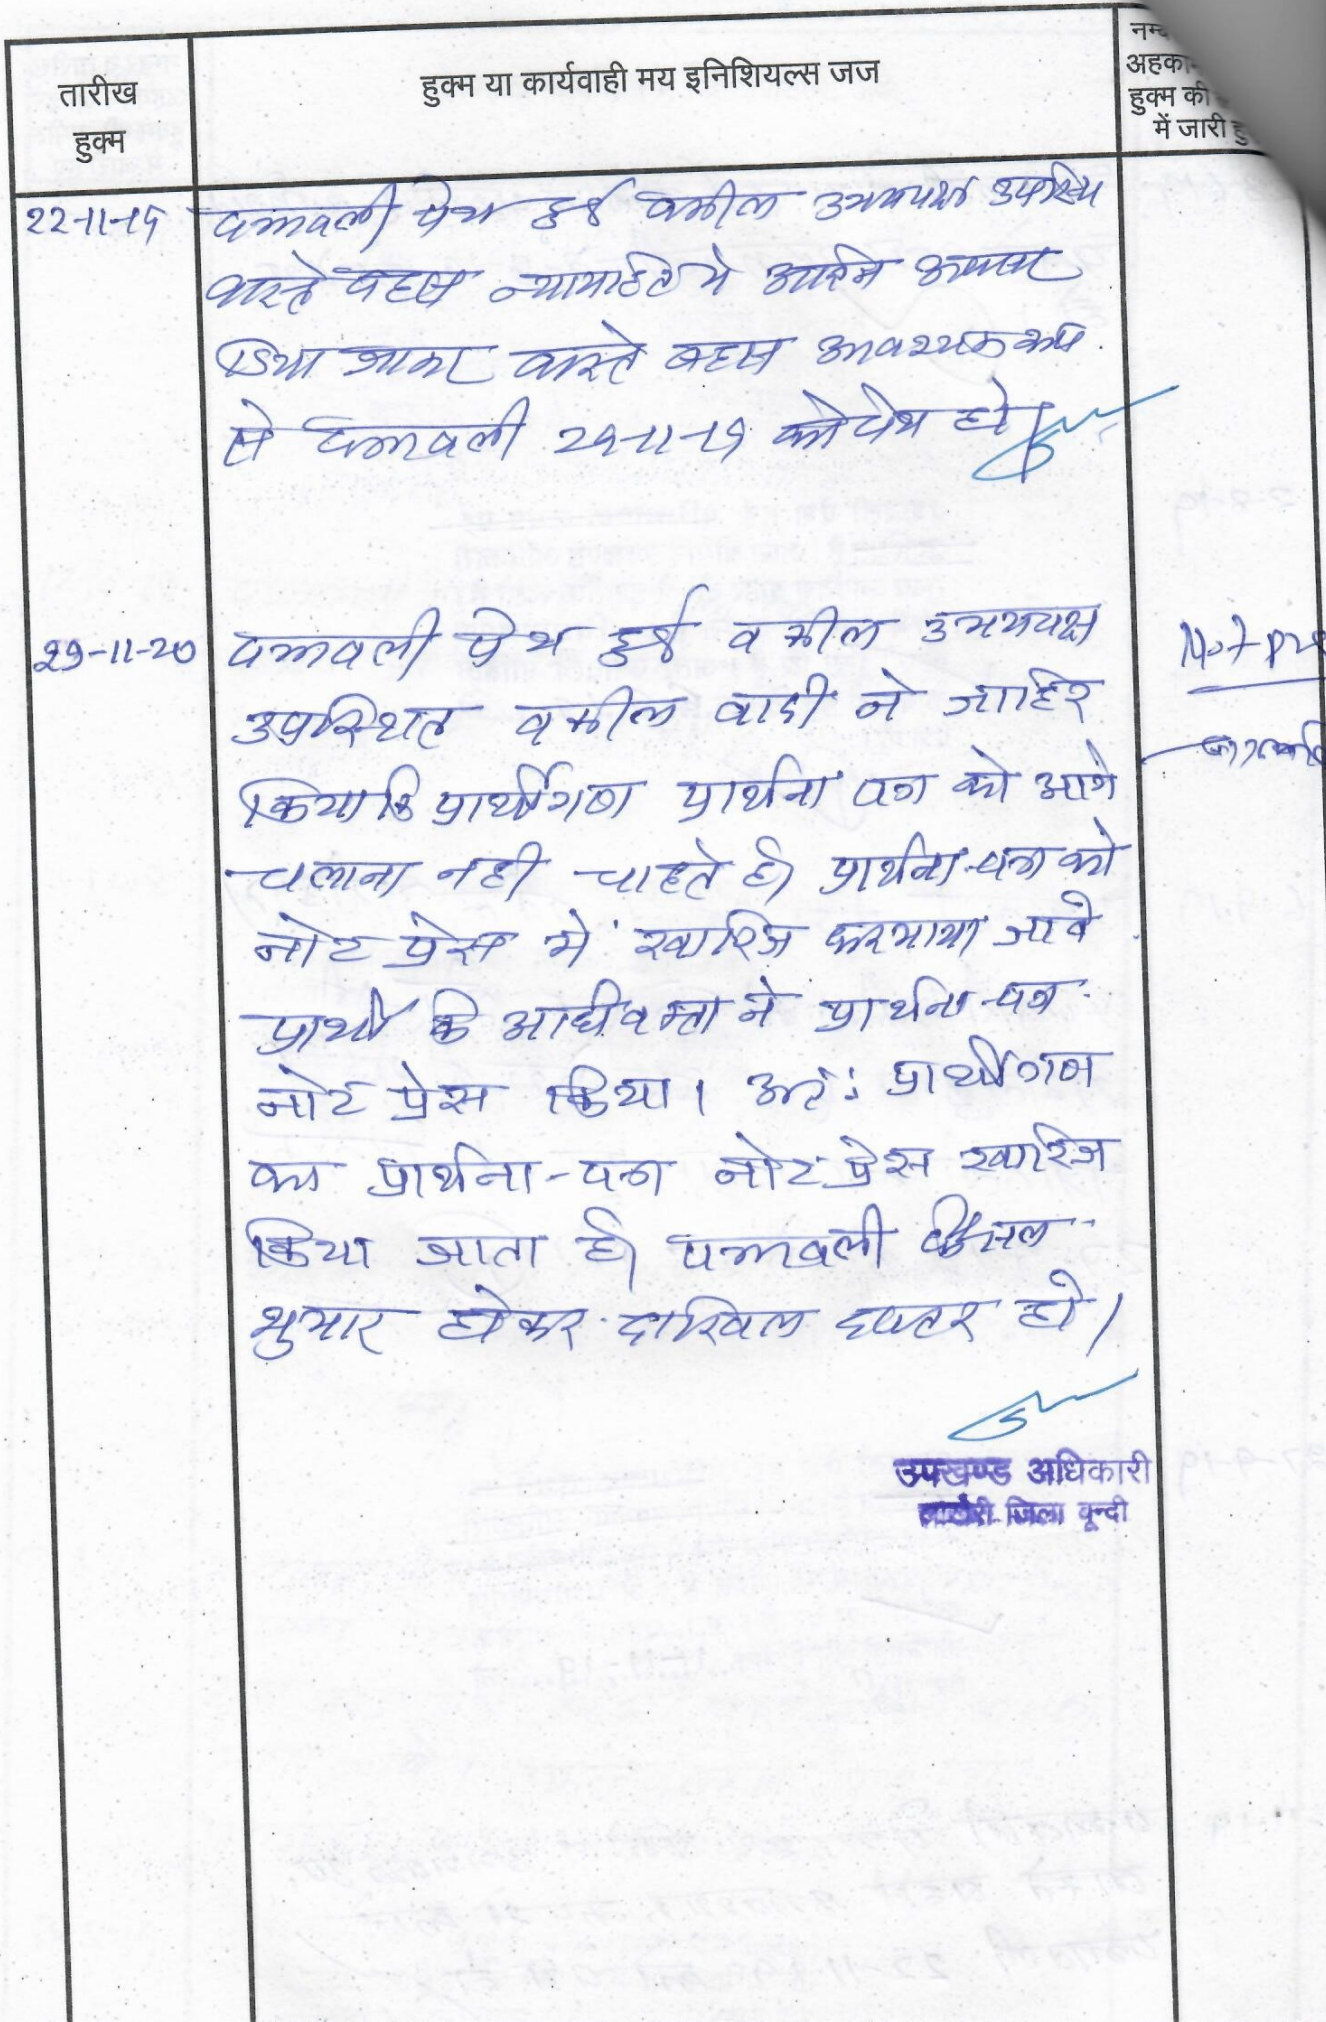 तारीख
हुक्म
हुक्म या कार्यवाही मय इनिशियल्स जज
अहका
हुक्म की
में जारी हु
22-11-19 पत्रावली पेश हुई वकील उभयपक्ष उपस्थि
वास्ते बहस न्यायहित मे अवसर
दिया जाकर वास्ते बहस आवश्यक रूप
से पत्रावली 29-11-19 को पेश हो।
29-11-20 पत्रावली पेश हुई वकील उभयपक्ष
उपस्थित वकील वादी ने जाहिर
किया कि प्रार्थीगण प्रार्थना पत्र को आगे
चलाना नही चाहते है। प्रार्थना-पत्र को
नोट प्रेस मे खारिज फरमाया जावे
प्रार्थी के अधिवक्ता ने प्रार्थना-पत्र
नोट प्रेस किया। अतः प्रार्थीगण
का प्रार्थना-पत्र नोट प्रेस खारिज
किया जाता है। पत्रावली फैसल
शुमार होकर दाखिल दफ्तर हो।
Not Pre
उपखण्ड अधिकारी
जिला बून्दी